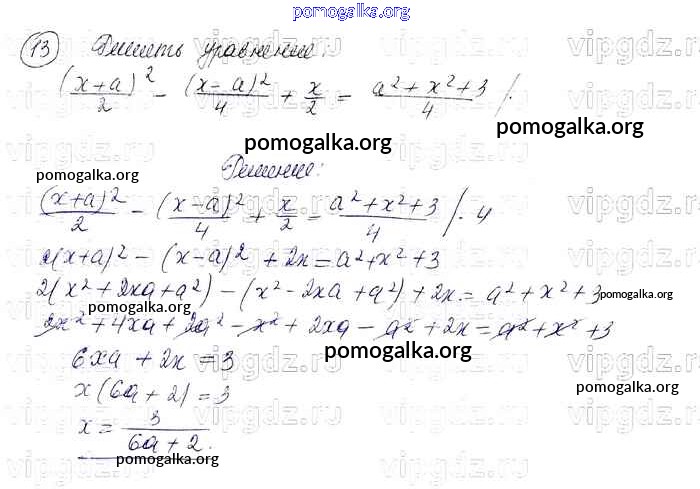 pomogalka.org
vipgdz.ru vipgdz.ru vipgdz.ru
13 Решить уравнение:
(x+a)²/2 − (x−a)²/4 + x/2 = a²+x²+3/4 /.
pomogalka.org pomogalka.org
Решение:
pomogalka.org
(x+a)²/2 − (x−a)²/4 + x/2 = a²+x²+3/4 /· 4
2(x+a)² − (x−a)² + 2x = a²+x²+3
2(x²+2xa+a²) − (x²−2xa+a²) + 2x = a²+x²+3
pomogalka.org pomogalka.org
2x²+4xa+2a²−x²+2xa−a²+2x = a²+x²+3
pomogalka.org
6xa + 2x = 3
pomogalka.org
x(6a+2) = 3
x = 3/6a+2.
pomogalka.org